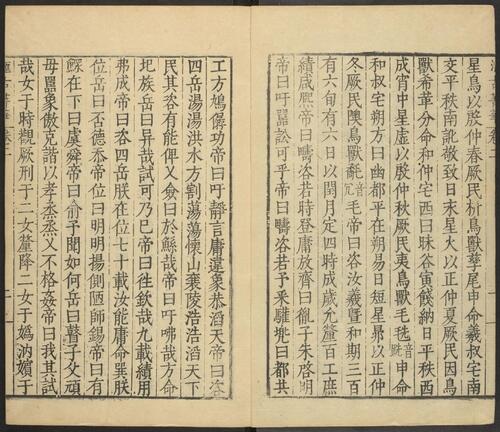 星鳥以殷仲春厥民析鳥獸孳尾申命羲叔宅南
交平秩南訛敬致日永星火以正仲夏厥民因鳥
獸希革分命和仲宅西曰昧谷寅餞納日平秩西
成宵中星虛以殷仲秋厥民夷鳥獸毛毨音跣申命
和叔宅朔方曰幽都平在朔易日短星昴以正仲
冬厥民隩鳥獸氄音冗毛帝曰咨汝羲暨和期三百
有六旬有六日以閏月定四時成歲允釐百工庶
績咸熙帝曰疇咨若時登庸放齊曰胤子朱啓明
帝曰吁嚚訟可乎帝曰疇咨若予采驩兠曰都共
工方鳩僝功帝曰吁靜言庸違象恭滔天帝曰咨
四岳湯湯洪水方割蕩蕩懷山襄陵浩浩滔天下
民其咨有能俾乂僉曰於鯀哉帝曰吁咈哉方命
圯族岳曰异哉試可乃已帝曰往欽哉九載績用
弗成帝曰咨四岳朕在位七十載汝能庸命巽朕
位岳曰否德忝帝位曰明明揚側陋師錫帝曰有
鰥在下曰虞舜帝曰俞予聞如何岳曰瞽子父頑
母嚚象傲克諧以孝烝烝乂不格姦帝曰我其試
哉女于時觀厥刑于二女釐降二女于嬀汭嬪于